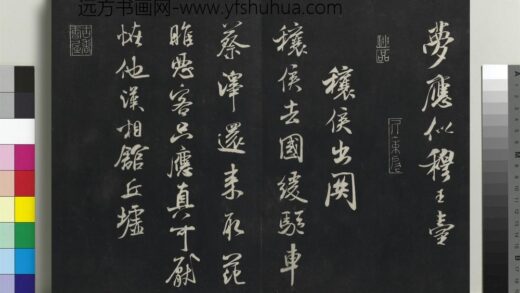 远方书画网-www.yfshuhua.com
夢應似穆王
穰侯出関
穰侯去國緩驅車
蔡澤還来取范
睢惡客只應真可厭
恠他漢相館丘墟